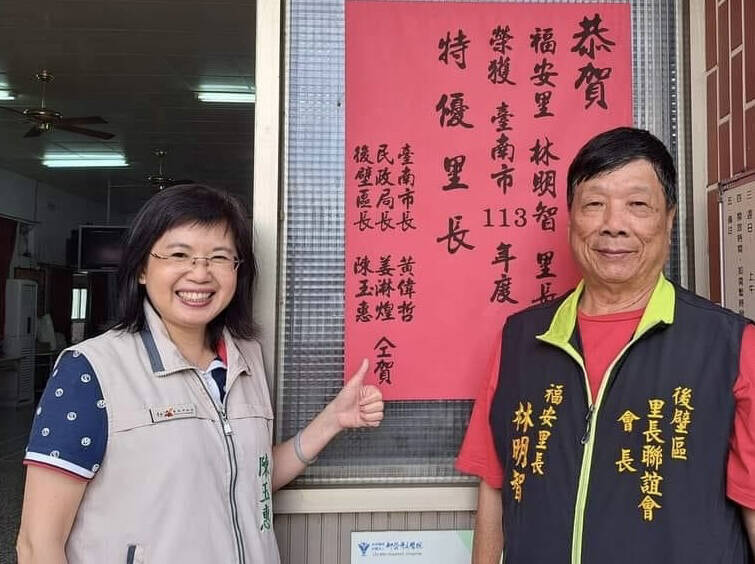 恭賀
福安里 林明智 里長
榮獲 臺南市 113 年度
特優里長
臺南市長 黃偉哲
民政局長 姜淋煌
後壁區長 陳玉惠
仝賀
陳玉惠
後壁區
里長聯誼會
會長
福安里長
林明智